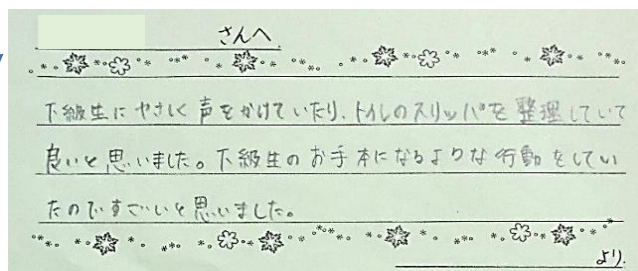 さんへ
下級生にやさしく声をかけていたり、トイレのスリッパを整理していて
良いと思いました。下級生のお手本になるような行動をしてい
たのですごいと思いました。
より.